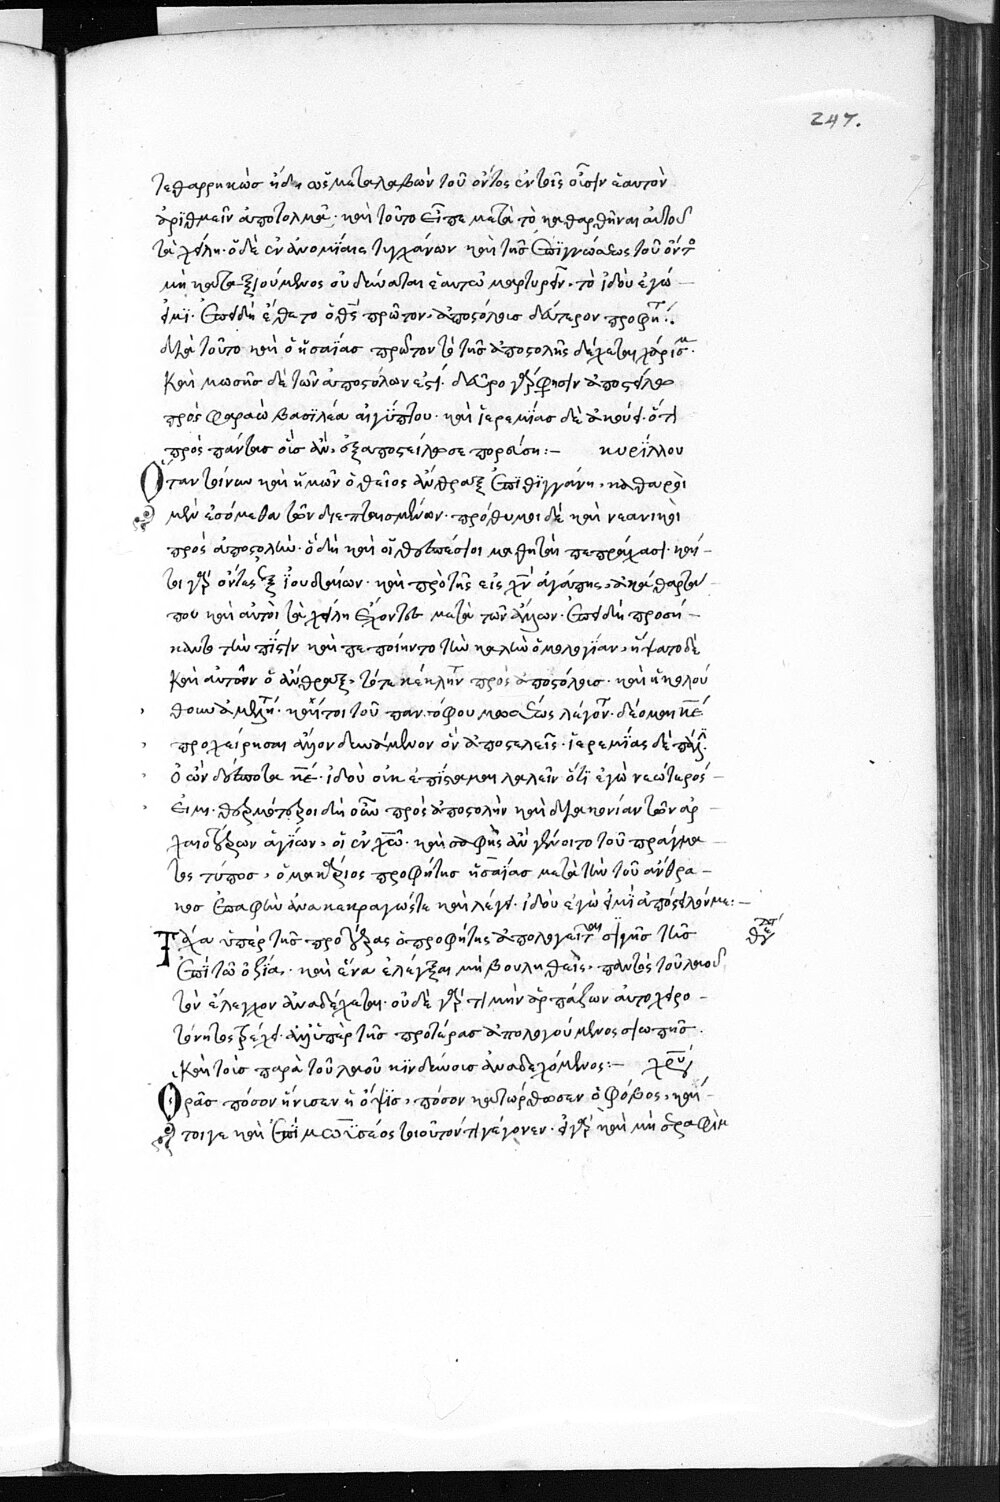 247.
τεθαρρηκὼσ ἤδη ὡς μεταλαβὼν τοῦ ὄντος ἐν τοῖς οὖσιν ἑαυτὸν
ἀριθμεῖν ἀποτολμᾶ· καὶ τοῦτο εἶπε μετὰ τὸ καθαρθῆναι αὐτοῦ
τὰ χείλη· ὁ δὲ ἐν ἀνομίαις τυγχάνων καὶ τῆς ἐπιγνώσεως τοῦ ὄντος
μὴ καταξιούμενος οὐ δύναται ἑαυτῶ μαρτυρεῖν· τὸ ἰδοὺ ἐγώ
εἰμί· ἐπειδὴ ἔθετο ὁ θς πρῶτον ἀποστόλους δεύτερον προφήτ
διὰ τοῦτο καὶ ὁ ἡσαΐας πρῶτον τὸ τῆς ἀποστολῆς δέχεται χάρισμα·
Καὶ μωσῆς δὲ τῶν ἀποστόλων ἐστί· δεῦρο γάρ φησιν ἀποστείλω
πρὸς φαραὼ βασιλέα αἰγύπτου· καὶ ἱερεμίας δὲ ἀκούει· ὅτι
πρὸς πάντας οὓς ἂν ἐξαποστείλω σε πορεύση:– κυρίλλου
Ὅταν τοίνυν καὶ ἡμῶν ὁ θεῖος ἄνθραξ ἐπιθιγγάνη, καθαροὶ
μὲν ἐσόμεθα τῶν διεπταισμένων· πρόθυμοι δὲ καὶ νεανικοὶ
πρὸς ἀποστολὴν· ὃ δὴ καὶ οἱ θεσπέσιοι μαθηταὶ πεπράχασι· καί
τοι γὰρ ὄντες ἐξ ἰουδαίων· καὶ πρὸ τῆς εἰς χν ἀγάπης, ἀκάθαρτα
που καὶ αὐτοὶ τὰ χείλη ἔχοντες μετὰ τῶν ἄλλων· ἐπειδὴ προσή
καντο τὴν πίστιν καὶ πεποίηντο τὴν καλὴν ὁμολογίαν, ἥψατο δὲ
Καὶ αὐτῶν ὁ ἄνθραξ, τότε κέκληνται πρὸς ἀποστόλους· καὶ ἠκολού
θουν ἀμελητὶ· καίτοι τοῦ πανσόφου μωσέως λέγοντος· δέομαι κε
προχείρησαι ἄλλον δυνάμενον ὃν ἀποστελεῖς· ἱερεμίας δὲ πάλιν
ὁ ὢν δέσποτα κε· ἰδοὺ οὐκ ἐπίσταμαι λαλεῖν ὅτι ἐγὼ νεώτερός
εἰμι· θερμότεροι δὴ οὖν πρὸς ἀποστολὴν καὶ διακονίαν τῶν ἀρ
χαιοτέρων ἁγίων, οἱ ἐν χω· καὶ σαφὴς ἂν γένοιτο τοῦ πράγμα
τος τύπος, ὁ μακάριος προφήτης ἡσαΐας μετὰ τὴν τοῦ ἄνθρα
κος ἐπαφὴν ἀνακεκραγώς τε καὶ λέγει· ἰδοὺ ἐγώ εἰμὶ ἀπόστειλόν με:–
Τάχα ὑπὲρ τῆς προτέρας ὁ προφήτης ἀπολογεῖται σιγῆς τῆς
ἐπὶ τῶ ὀζία· καὶ ἕνα ἐλέγξαι μὴ βουληθεὶς, παντὸς τοῦ λαοῦ
τὸν ἔλεγχον ἀναδέχεται· οὐδὲ γὰρ τιμὴν ἁρπάζων αὐτοχειρο
τόνητος τρέχει· ἀλλ' ὑπὲρ τῆς προτέρας ἀπολογούμενος σιωπῆς
Καὶ τοὺς παρὰ τοῦ λαοῦ κινδύνους ἀναδεχόμενος:–
Ὁρᾶς πόσον ἤνισεν ἡ ὄψις, πόσον κατώρθωσεν ὁ φόβος, καί
τοιγε καὶ ἐπὶ μωϋσέος τοιοῦτόν τι γέγονεν· εἰ γὰρ καὶ μὴ σεραφὶμ